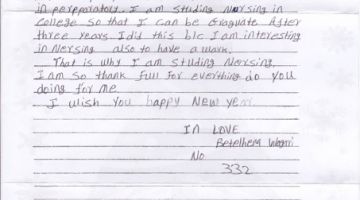 in perporatory. I am studing Nursing in
College so that I can be Graguate After
three years I did this b/c I am interesting
in Nersing also to have a work.
That is why I am studing Nersing
I am so thank full for everthing do you
doing for me
I wish you happy New year.
IN LOVE
Betelhem
NO
332